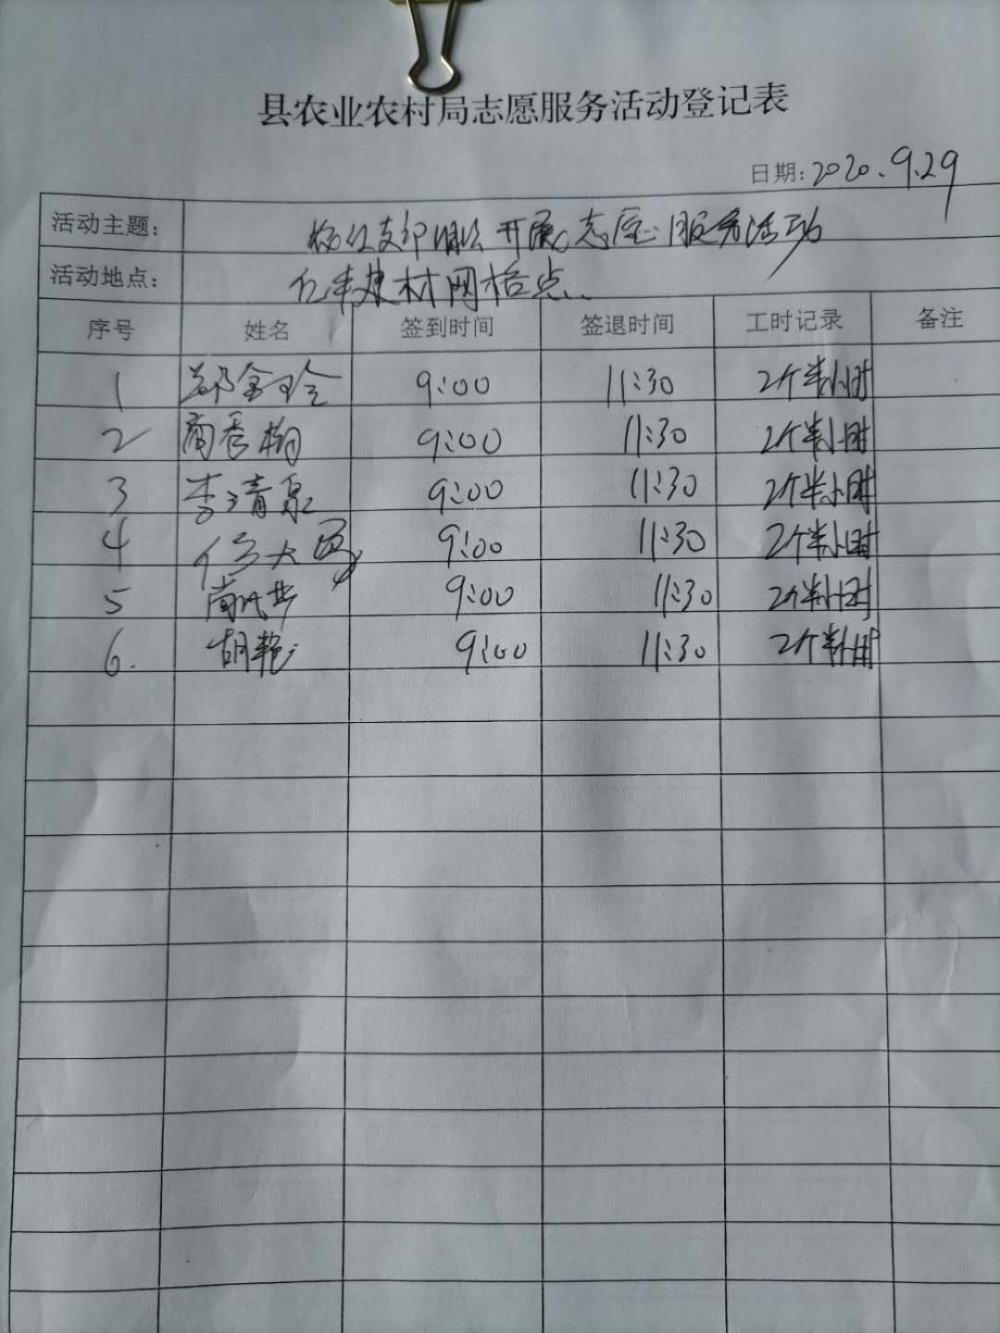 县农业农村局志愿服务活动登记表
日期：2020.9.29
活动主题： 开展志愿服务活动
活动地点： 亿丰建材网格点
序号 姓名 签到时间 签退时间 工时记录 备注
1 郑金玲 9:00 11:30 2个半小时
2 商香梅 9:00 11:30 2个半小时
3 李清泉 9:00 11:30 2个半小时
4 9:00 11:30 2个半小时
5 9:00 11:30 2个半小时
6. 胡艳 9:00 11:30 2个半小时